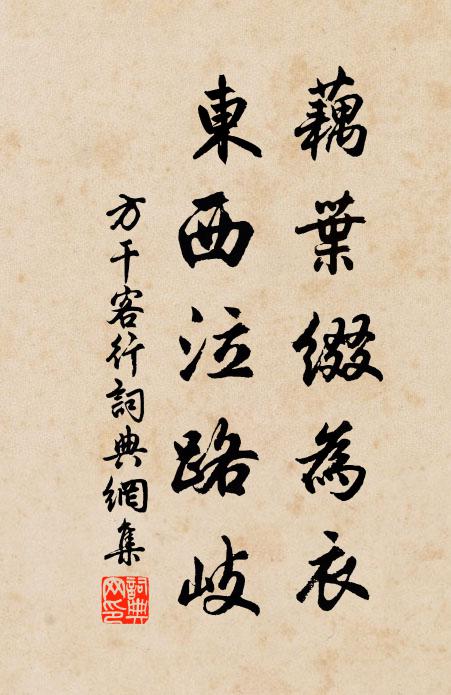 藕葉綴為衣
東西泣路歧
方干客行詞典網集
詞典網印